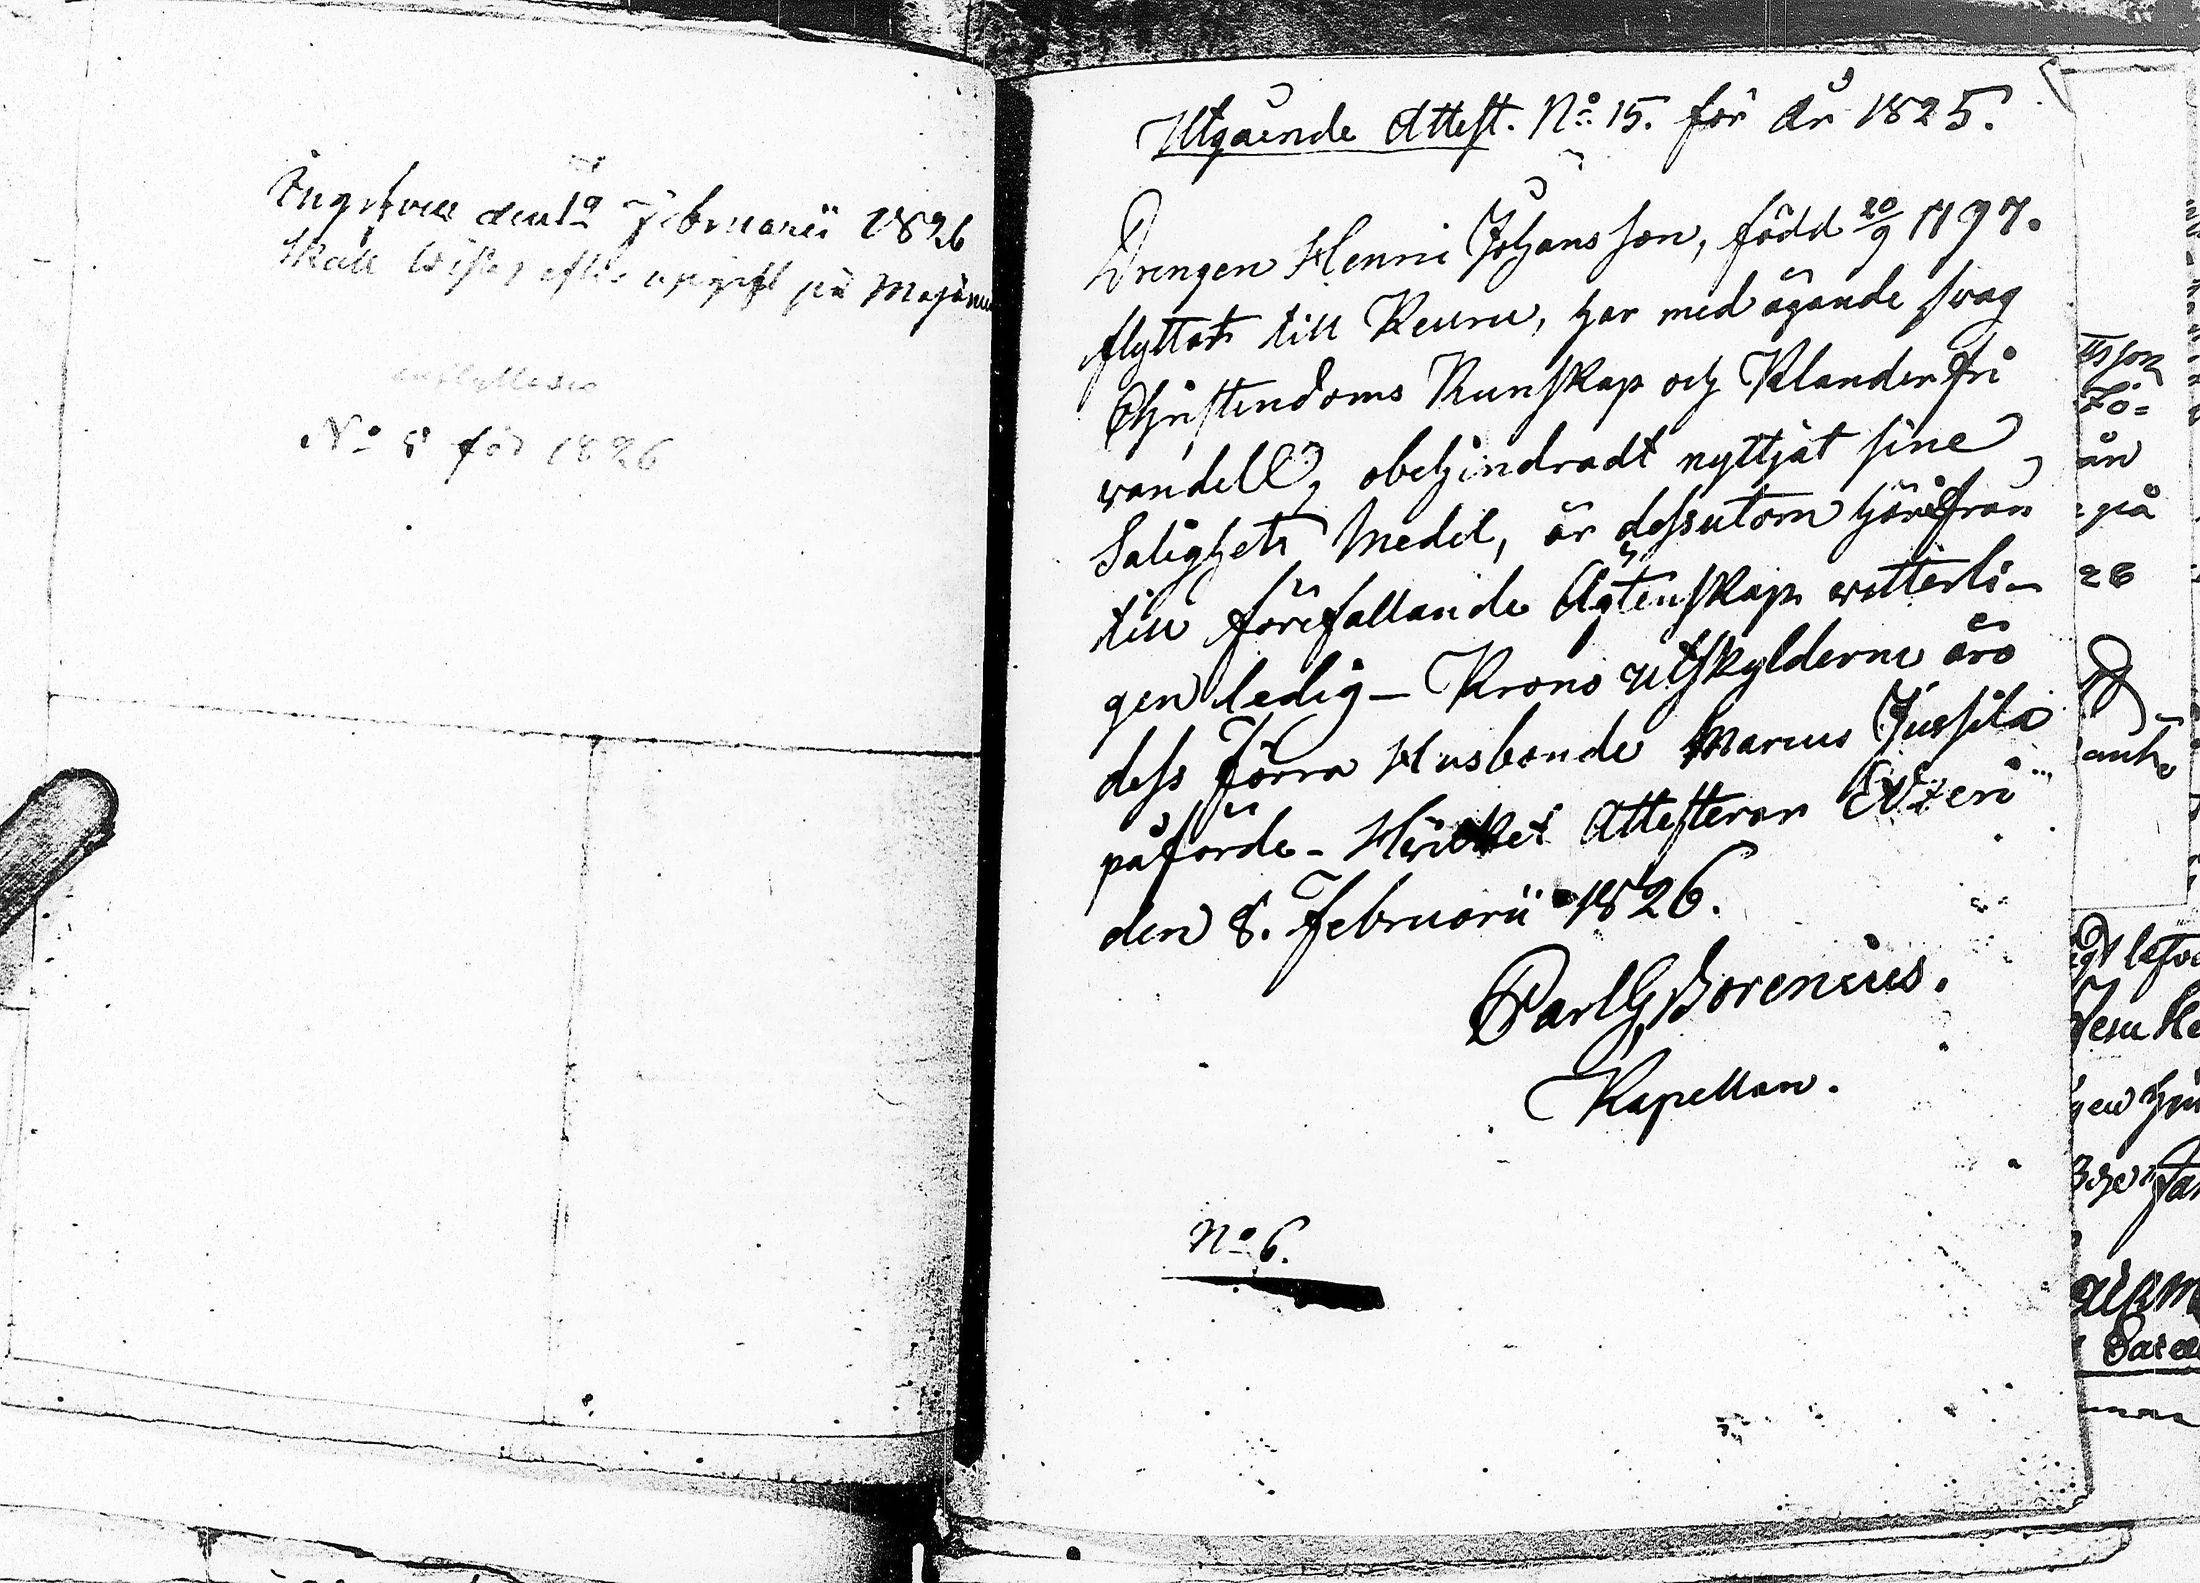 Ingifven den 12 Februarii 1826
Skall wistas efter upgift på
inflyttades
No 8 för 1826
Utgående Attest. No 15. för år 1825.
Drengen Henric Johansson, född 20/9 1797.
flyttat till Keuru, har med ägande svag
Christendoms Kunskap och Klanderfri
wandell, obehindradt nyttjat sine
Salighets Medel, är dessutom härifrån
till förefallande Ägtenskap witterli-
gen ledig - Krono utskylderne äro
dess förra Husbonde Marcus Jussila
påförde - Hvilket Attesterar Etzeri
den 8. Februarii 1826.
Carl G Borenius.
Kapellan.
No 6.
sson
Fö-
ån
på
26